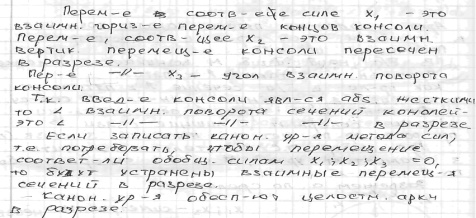 Перем-е соотв-ее силе X₁ - это
взаимн. гориз-е перем-е концов консоли.
Перем-е, соотв-щее X₂ - это взаимн.
вертик. перемещ-е консоли пересечен
в разрезе.
Пер-е -//- X₃ - угол взаимн. поворота
консоли.
Т.к. введ-е консоли явл-ся абс. жесткими
то ∠ взаимн. поворота сечений консолей-
это ∠ -//- -//- -//- в разрезе
Если записать канон. ур-я метода сил,
т.е. потребовать, чтобы перемещение
соответ-ли обобщ. силам X₁; X₂; X₃ =0,
то будут устранены взаимные перемещ-я
сечений в разреза.
- Канон. ур-я обесп-ют целостн. арки
в разрезе.